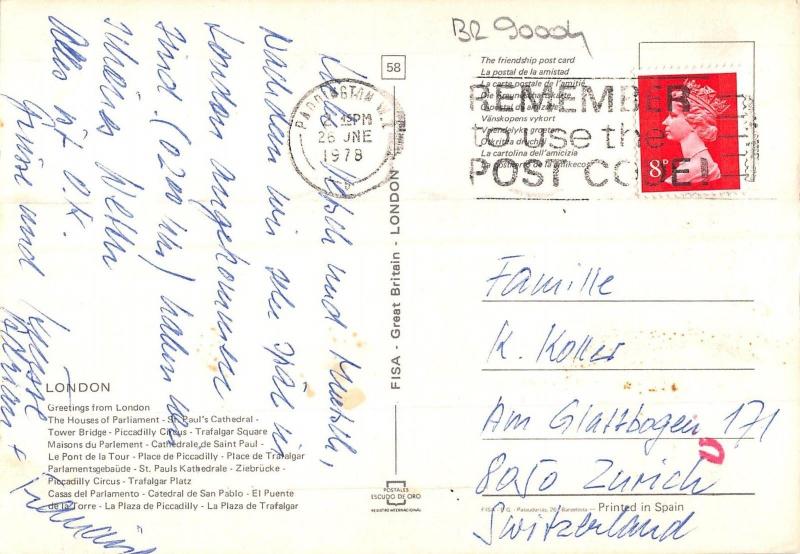 BR 9000
58
The friendship post card
La postal de la amistad
La carte postale de l'amitié
Vänskopens vykort
La cartolina dell'amicizia
REMEMBER
to use the
POST CODE!
PADDINGTON W.2
PM
26 JNE
1978
8P
und
Nachdem wir sehr spät in
London angekommen
sind (0200 Uhr) haben wir
Alles ist O.K.
Grüsse und Küsse
Adrian +
FISA - Great Britain - LONDON
Familie
K. Koller
Am Glattbogen 171
8050 Zürich
Switzerland
LONDON
Greetings from London
The Houses of Parliament - St. Paul's Cathedral -
Tower Bridge - Piccadilly Circus - Trafalgar Square
Maisons du Parlement - Cathedrale de Saint Paul -
Le Pont de la Tour - Place de Piccadilly - Place de Trafalgar
Parlamentsgebaüde - St. Pauls Kathedrale - Ziebrücke -
Piccadilly Circus - Trafalgar Platz
Casas del Parlamento - Catedral de San Pablo - El Puente
de la Torre - La Plaza de Piccadilly - La Plaza de Trafalgar
POSTALES
ESCUDO DE ORO
REGISTRO INTERNACIONAL
Printed in Spain